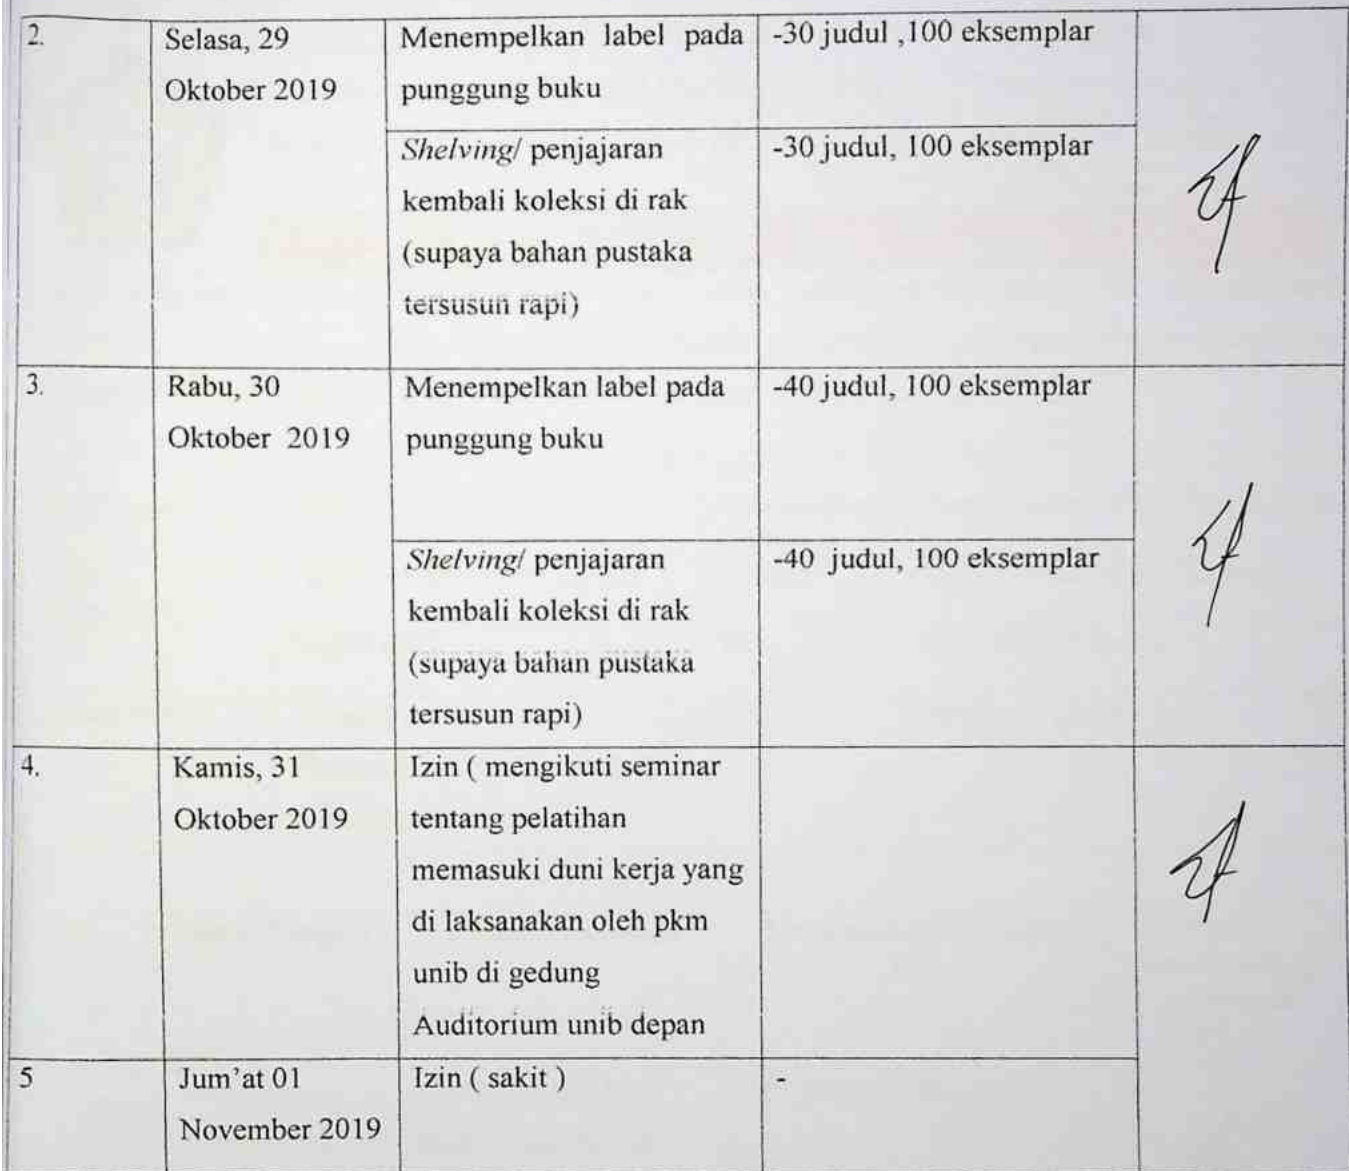 2.
Selasa, 29
Oktober 2019
Menempelkan label pada
punggung buku
-30 judul ,100 eksemplar
Shelving/ penjajaran
kembali koleksi di rak
(supaya bahan pustaka
tersusun rapi)
-30 judul, 100 eksemplar
3.
Rabu, 30
Oktober 2019
Menempelkan label pada
punggung buku
-40 judul, 100 eksemplar
Shelving/ penjajaran
kembali koleksi di rak
(supaya bahan pustaka
tersusun rapi)
-40 judul, 100 eksemplar
4.
Kamis, 31
Oktober 2019
Izin ( mengikuti seminar
tentang pelatihan
memasuki duni kerja yang
di laksanakan oleh pkm
unib di gedung
Auditorium unib depan
5
Jum'at 01
November 2019
Izin ( sakit )
-